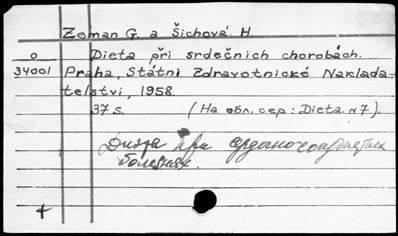 Zeman G. a Šichová. H.
o Dieta při srdečních chorobách.
34001 Praha, Státní Zdravotnické Naklada-
telství, 1958.
37 s. (На обл. сер: Dieta. н 7).
Диэта при сердечно-сосудистых
болезнях.
4